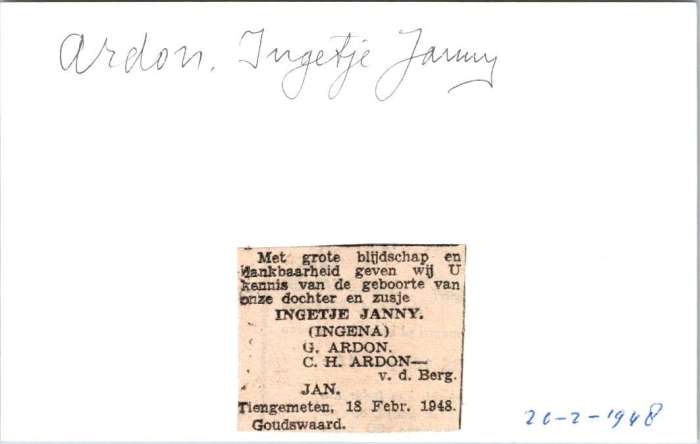 Ardon, Ingetje Janny
Met grote blijdschap en
dankbaarheid geven wij U
kennis van de geboorte van
onze dochter en zusje
INGETJE JANNY.
(INGENA)
G. ARDON.
C. H. ARDON—
v. d. Berg.
JAN.
Tiengemeten, 18 Febr. 1948.
Goudswaard.
20-2-1948